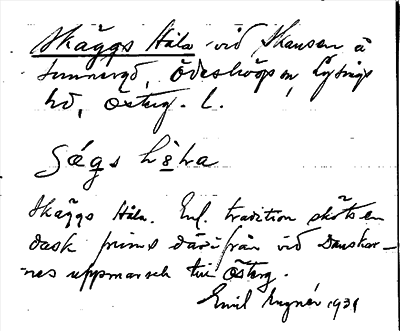 Skäggs Håla vid Skansen å
Sunneryd, Ödeshögs sn, Lysings
hd, Österg. l.
Skäggs Håla. Enl. tradition sköts en
dansk prins därifrån vid Danskar-
nes uppmarsch till Österg.
Emil 1931